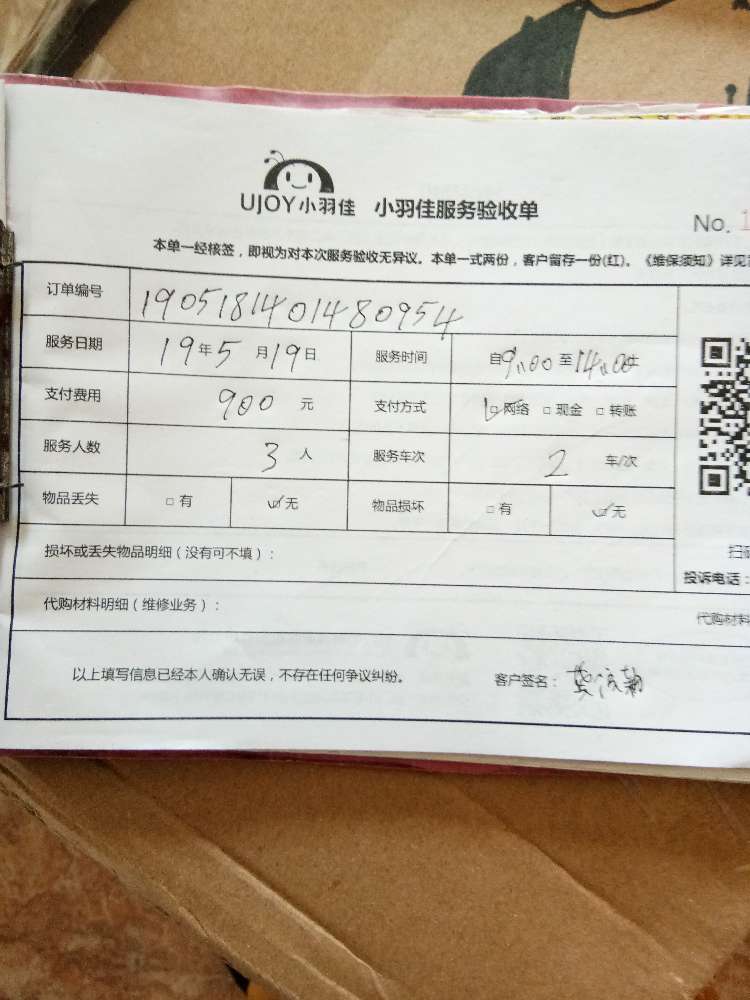 UJOY小羽佳 小羽佳服务验收单
No. 1
本单一经核签，即视为对本次服务验收无异议。本单一式两份，客户留存一份(红)。《维保须知》详见
订单编号 1905181401480954
服务日期 19年5月19日 服务时间 自9:00至14:00止
支付费用 900元 支付方式 ☑网络 □现金 □转账
服务人数 3人 服务车次 2车/次
物品丢失 □有 ☑无 物品损坏 □有 ☑无
扫码
损坏或丢失物品明细（没有可不填）：
投诉电话：
代购材料明细（维修业务）：
代购材料
以上填写信息已经本人确认无误，不存在任何争议纠纷。 客户签名：